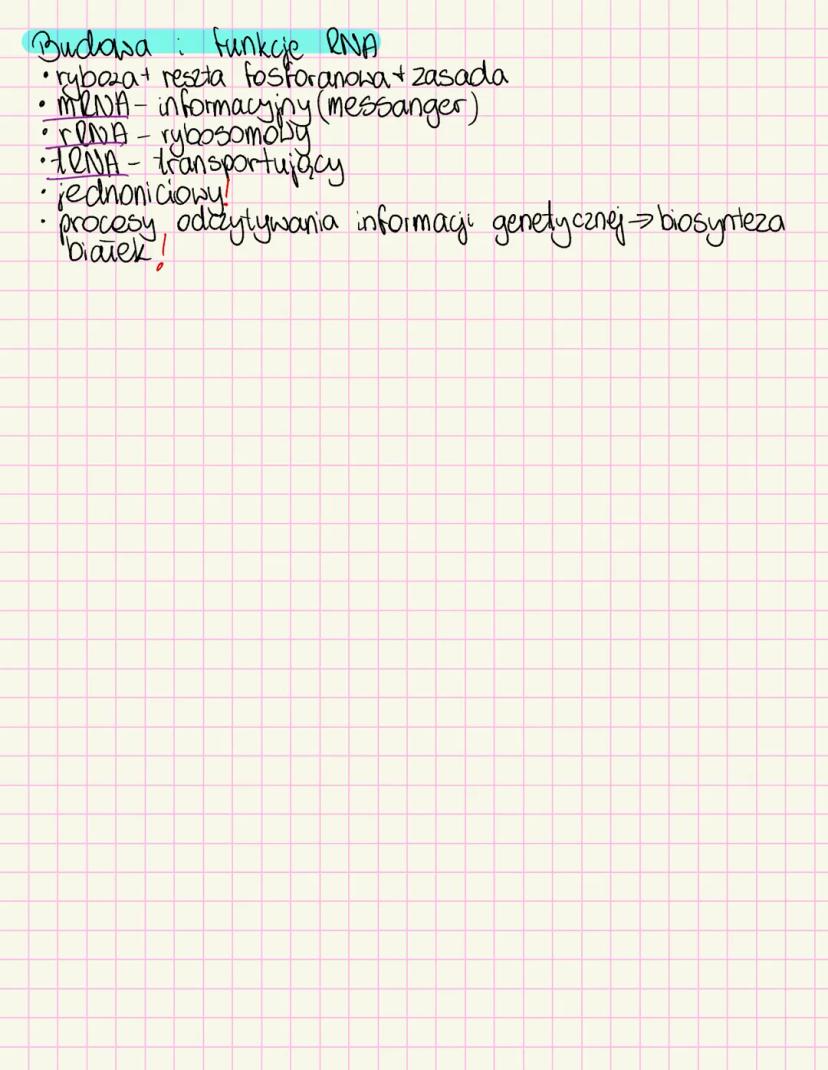 Budowa i funkcje RNA
• ryboza + reszta fosforanowa + zasada
• mRNA - informacyjny (messanger)
• rRNA - rybosomowy
• tRNA - transportujący
• jednoniciowy!
• procesy odczytywania informacji genetycznej → biosynteza
białek!